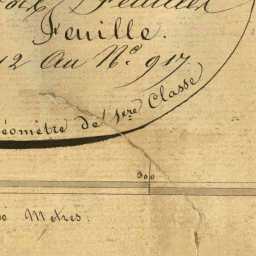 Feuille.
12 Au Nº. 917.
éomètre de 1ère Classe
300
Metres.